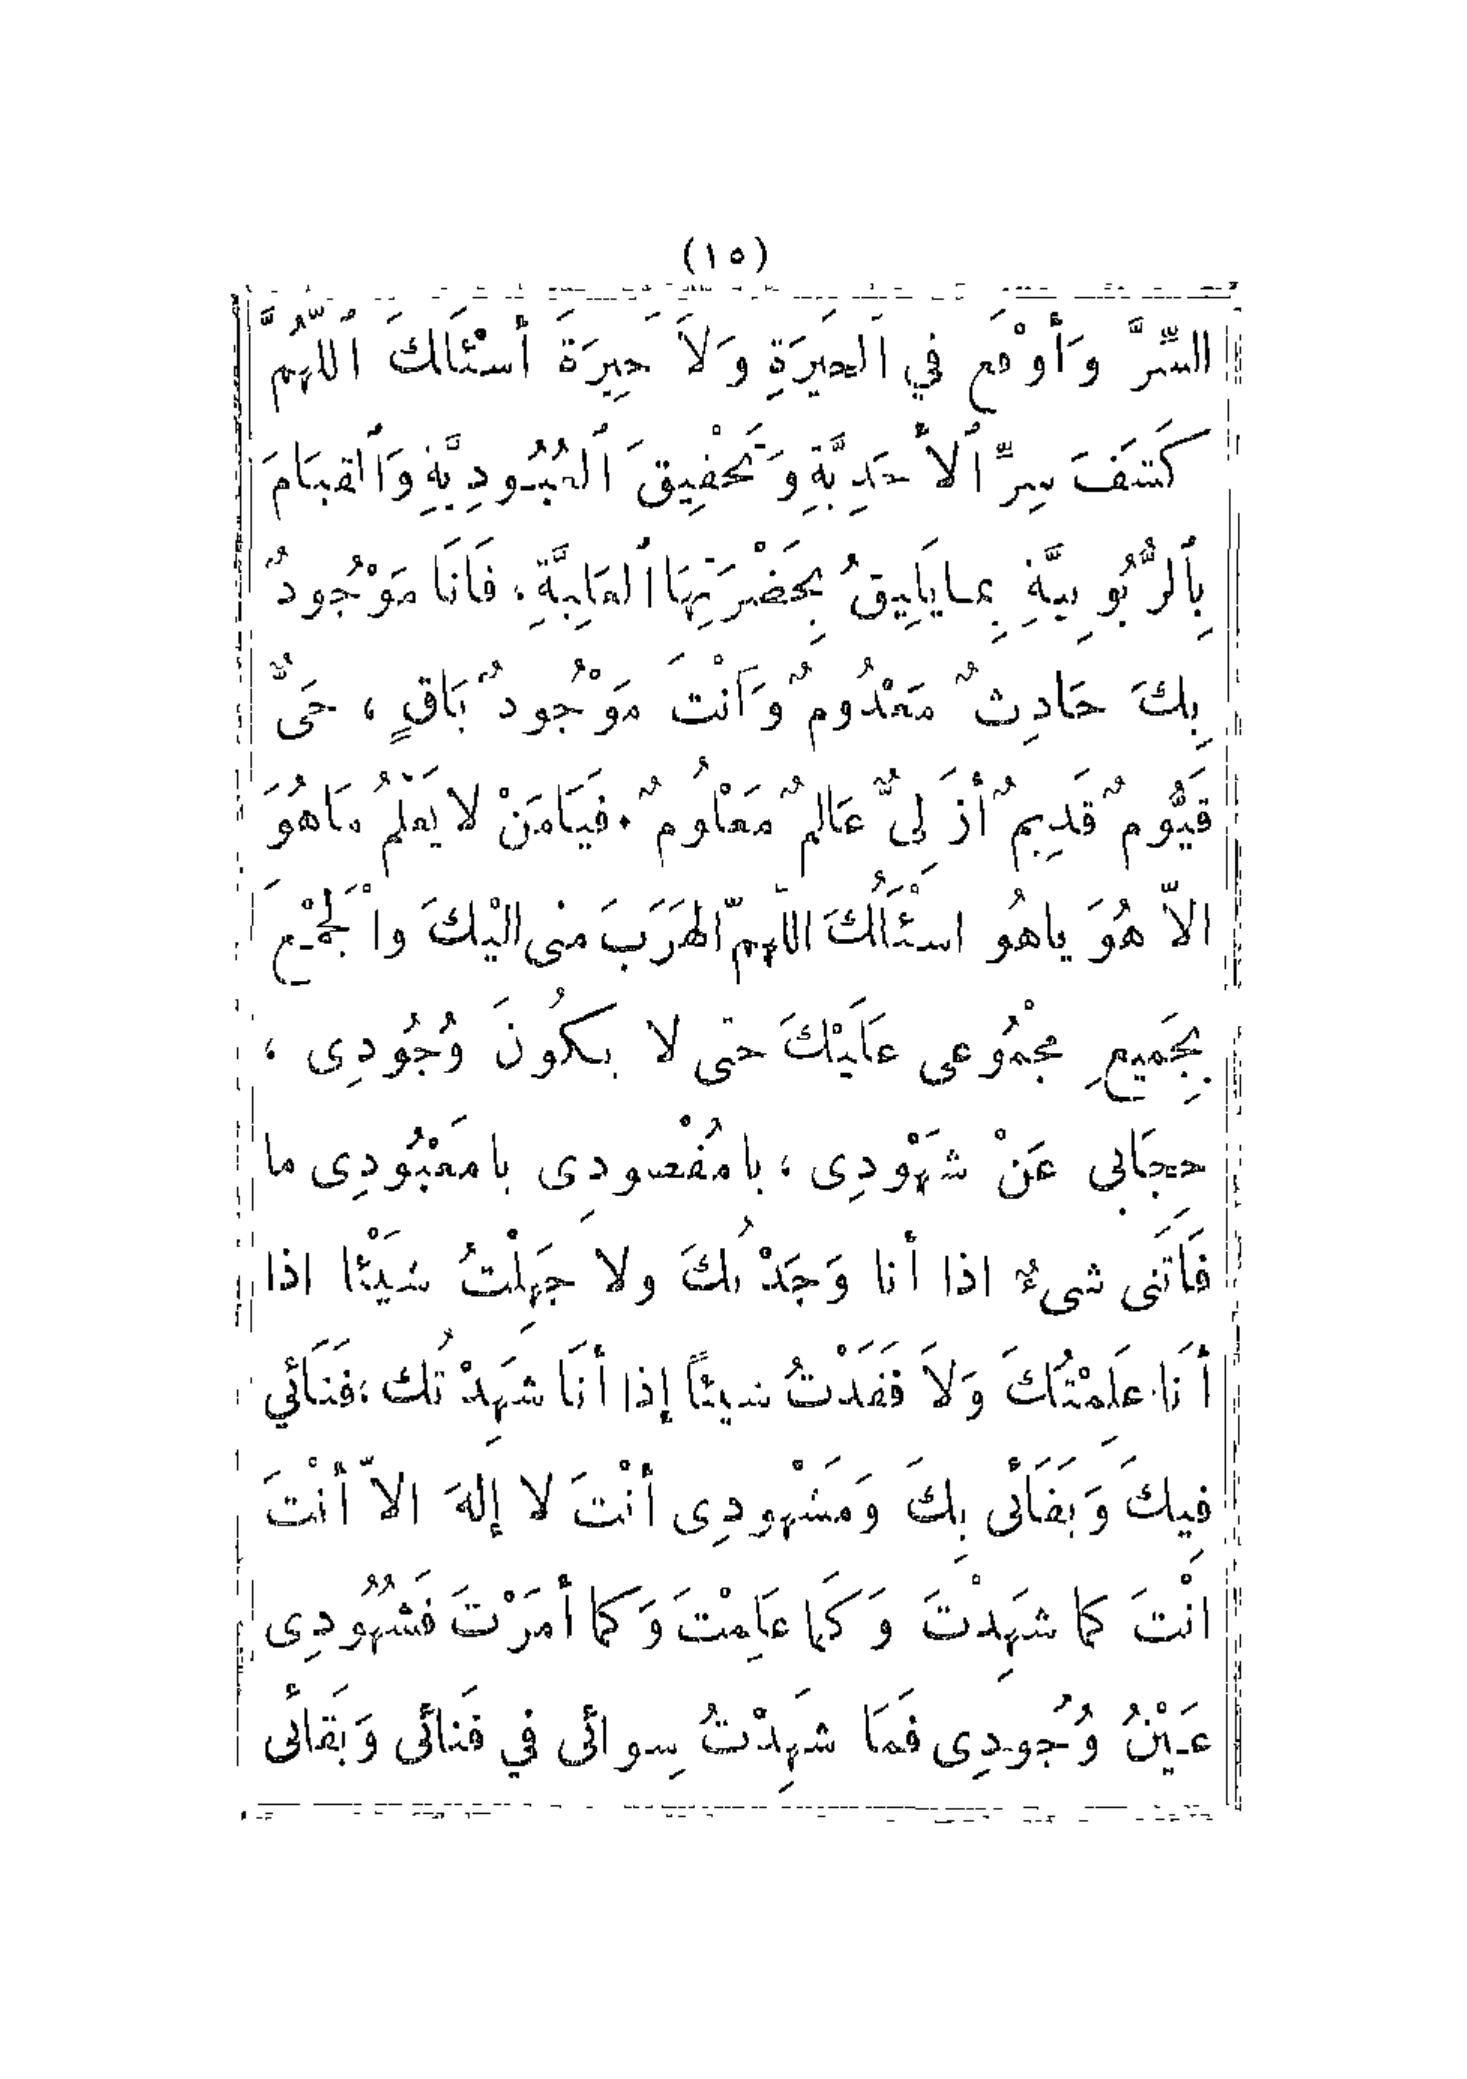 (١٥)
السِّرَّ وَأَوْقَعَ فِي الحَيرَةِ وَلاَ حِيرَةَ أَسْئَلَكَ اللّٰهُمَّ
كَشْفَ سِرِّ الأَحَدِيَّةِ وَتَحْقِيقَ الْعُبُودِيَّةِ وَالقيَامَ
بِالرُّبُوبِيَّةِ بِمَا يَلِيقُ بِحَضْرَتِهَا العَلِيَّةِ، فَانَا مَوْجُودٌ
بِكَ حَادِثٌ مَعْدُومٌ وَانْتَ مَوْجُودٌ بَاقٍ ، حَىٌّ
قَيُّومٌ قَدِيمٌ أَزَلِىٌّ عَالِمٌ مَعْلُومٌ. فَيَامَنْ لا يَعْلَمُ مَاهُوَ
الاّ هُوَ ياهُو اسْئَلُكَ اللّهمّ الهَرَبَ منى اليْكَ والْجَمْعَ
بِجَمِيعِ مجْمُوعى عَلَيْكَ حتى لا يكُونَ وُجُودِى ،
حِجَابى عَنْ شُهْوُدِى ، يا مُقْصودِى يا مَعْبُودِى ما
فَاتَنى شىءٌ اذا أنا وَجَدْتُكَ ولا جَهِلْتُ شَيْئا اذا
أَنَا عَلِمْتُكَ وَلاَ فَقَدْتُ شيئاً إذا أنَا شَهِدْتُك ، فَنَائي
فيكَ وَبَقَائى بِكَ وَمَشْهودِى أنْتَ لا إلهَ الاّ أنْتَ
انْتَ كما شهِدْتَ وَكَما عَلِمْتَ وَكما أمَرْتَ فَشُهُودِى
عَيْنُ وُجُودِى فَمَا شَهِدْتُ سِوائى في فَنائى وَبَقائى